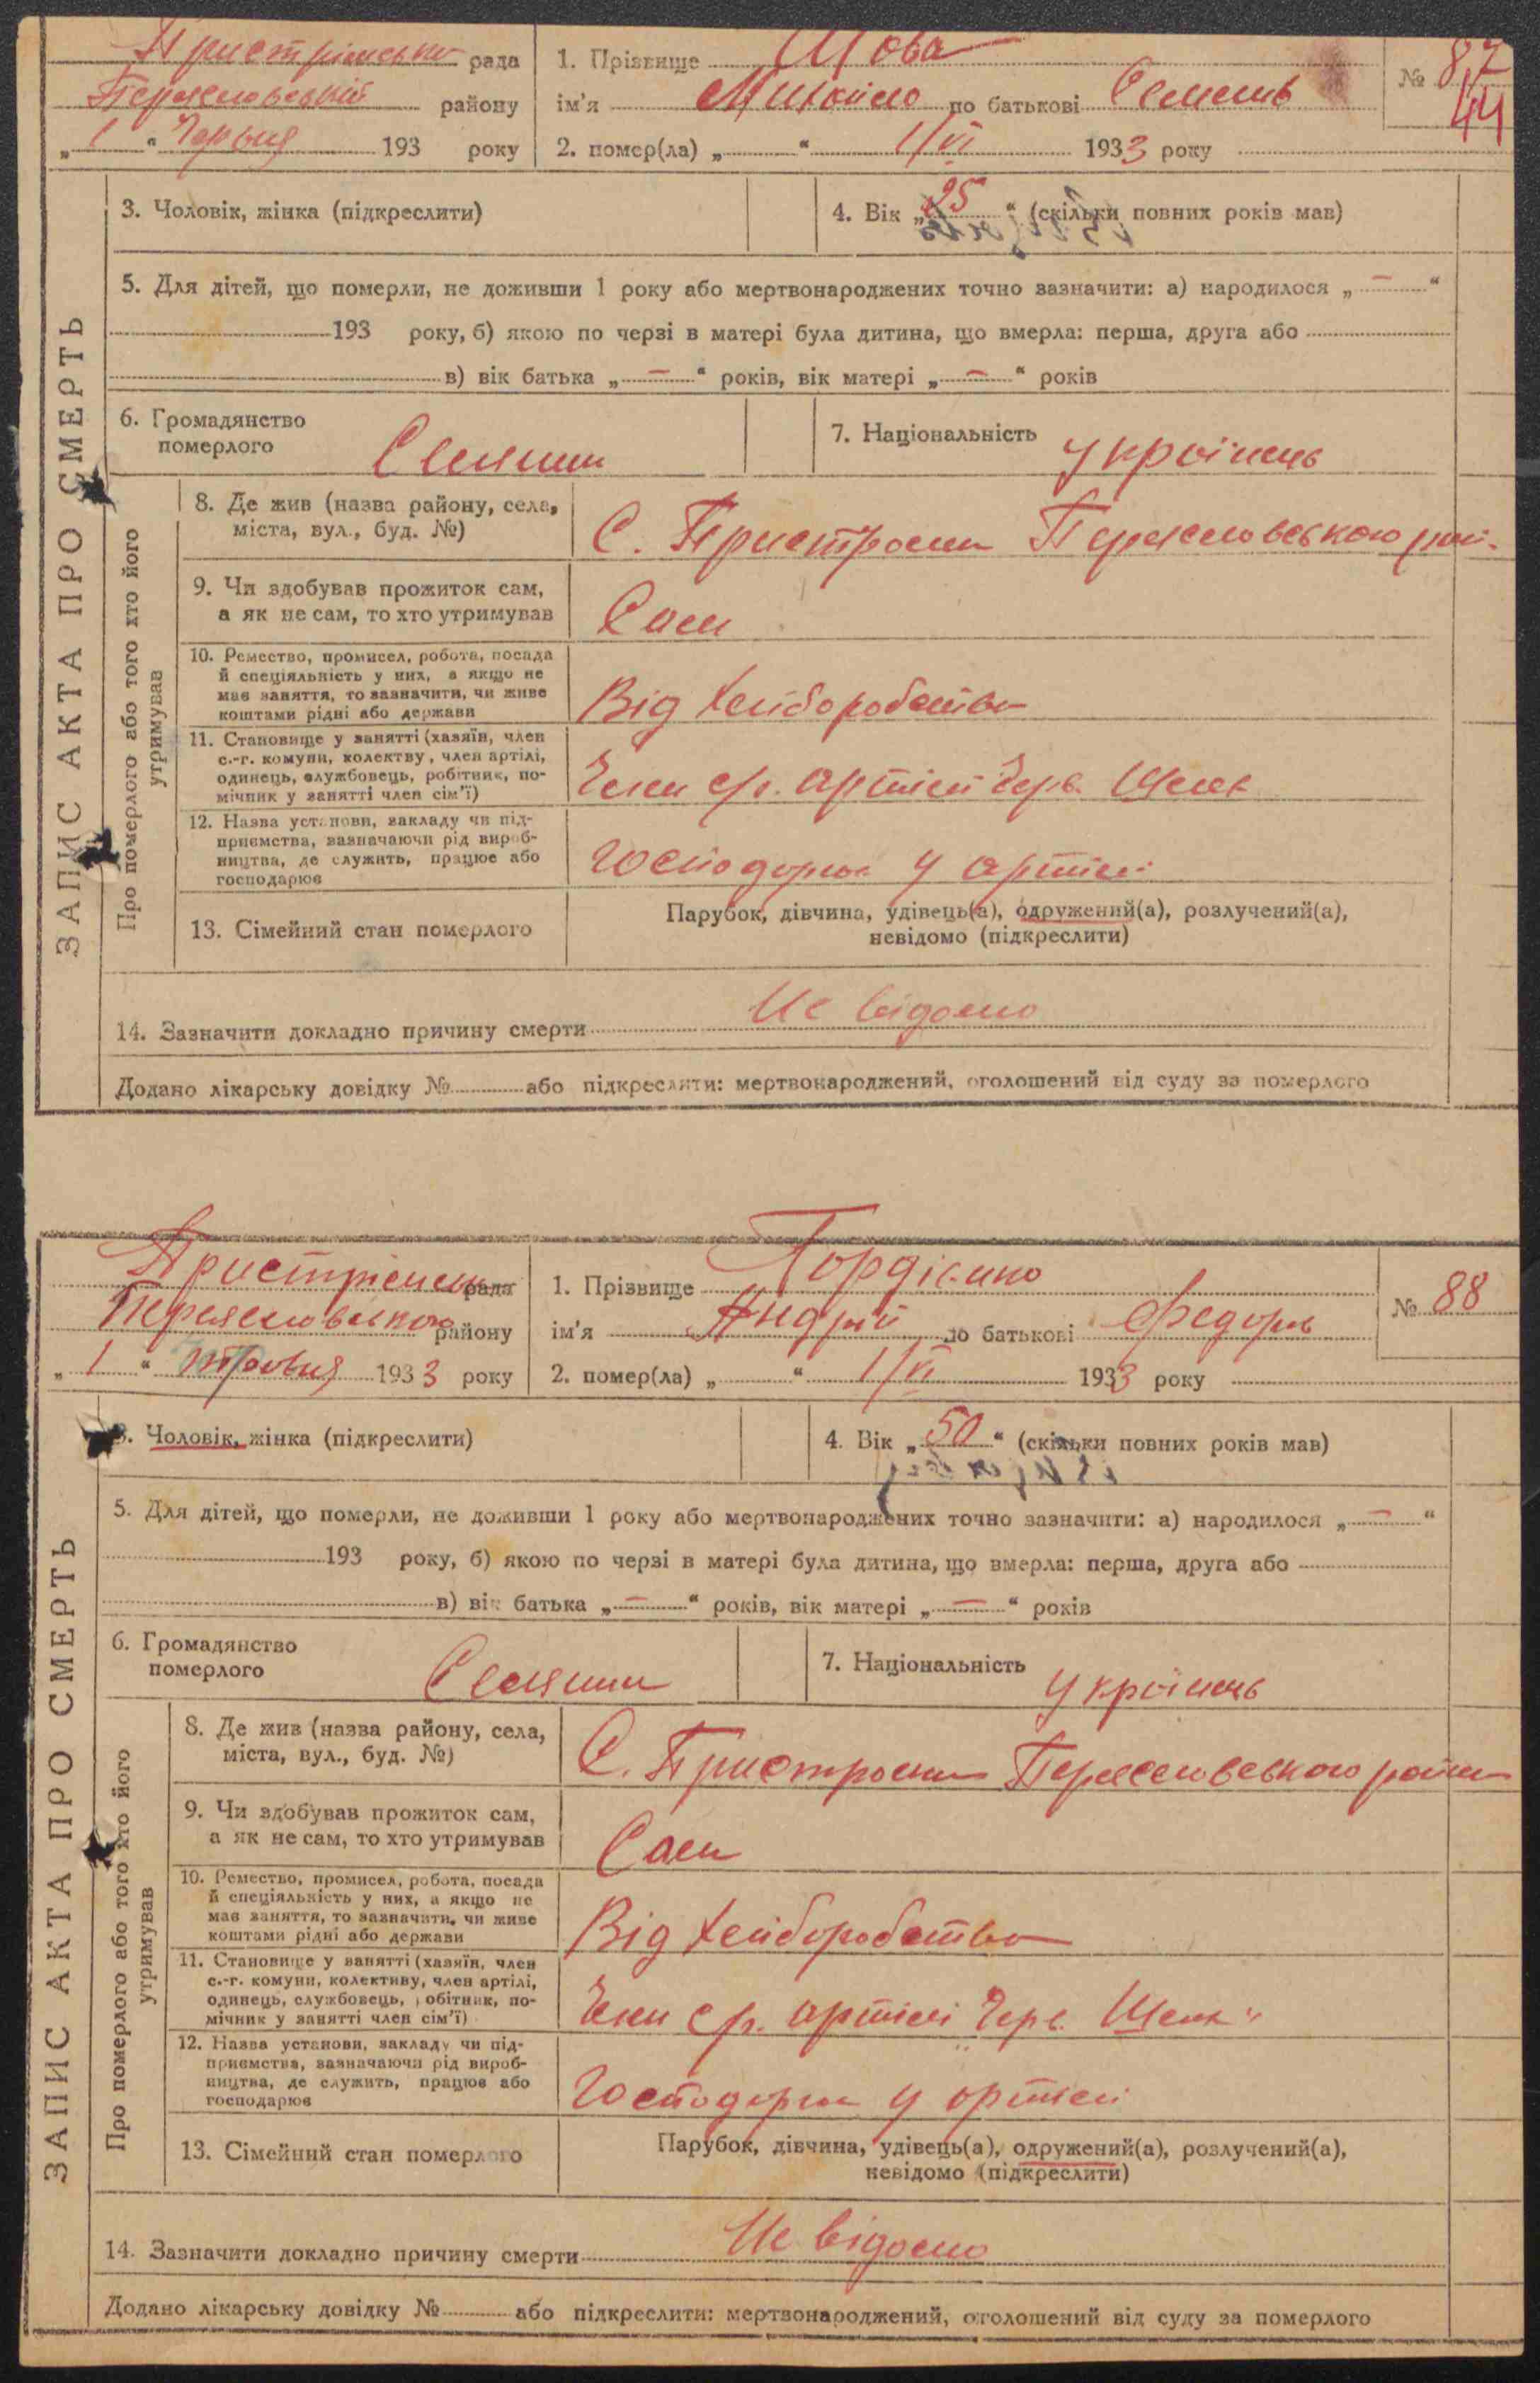 Пристрімська рада
Переяславський району
„ 1 “ Червня 193 року
1. Прізвище Шова
ім'я Михайло по батькові Семенів
2. помер(ла) „ “ 1/VI 1933 року
№ 87
44
ЗАПИС АКТА ПРО СМЕРТЬ
3. Чоловік, жінка (підкреслити)
4. Вік „ 25 “ (скільки повних років мав)
5. Для дітей, що померли, не доживши 1 року або мертвонароджених точно зазначити: а) народилося „ — “
193 року, б) якою по черзі в матері була дитина, що вмерла: перша, друга або
в) вік батька „ — “ років, вік матері „ — “ років
6. Громадянство
померлого Селянин
7. Національність українець
Про померлого або того хто його
утримував
8. Де жив (назва району, села,
міста, вул., буд. №)
С. Пристроми Переяславського рай.
9. Чи здобував прожиток сам,
а як не сам, то хто утримував
Сам
10. Ремество, промисел, робота, посада
й спеціяльність у них, а якщо не
має заняття, то зазначити, чи живе
коштами рідні або держави
Від хліборобства
11. Становище у занятті (хазяїн, член
с.-г. комуни, колектву, член артілі,
одинець, службовець, робітник, по-
мічник у занятті член сім'ї)
Член с/г. артілі Черв. Шлях
12. Назва установи, закладу чи під-
приємства, зазначаючи рід вироб-
ництва, де служить, працює або
господарює
Господарює у артілі
13. Сімейний стан померлого
Парубок, дівчина, удівець(а), одружений(а), розлучений(а),
невідомо (підкреслити)
14. Зазначити докладно причину смерти Не відомо
Додано лікарську довідку № або підкреслити: мертвонароджений, оголошений від суду за померлого
Пристрімська рада
Переяславського району
„ 1 “ травня 1933 року
1. Прізвище Гордієнко
ім'я Андрій по батькові Федорів
2. помер(ла) „ “ 1/VI 1933 року
№ 88
ЗАПИС АКТА ПРО СМЕРТЬ
3. Чоловік, жінка (підкреслити)
4. Вік „ 50 “ (скільки повних років мав)
5. Для дітей, що померли, не доживши 1 року або мертвонароджених точно зазначити: а) народилося „ — “
193 року, б) якою по черзі в матері була дитина, що вмерла: перша, друга або
в) вік батька „ — “ років, вік матері „ — “ років
6. Громадянство
померлого Селянин
7. Національність українець
Про померлого або того хто його
утримував
8. Де жив (назва району, села,
міста, вул., буд. №)
С. Пристроми Переяславського району
9. Чи здобував прожиток сам,
а як не сам, то хто утримував
Сам
10. Ремество, промисел, робота, посада
й спеціяльність у них, а якщо не
має заняття, то зазначити, чи живе
коштами рідні або держави
Від хліборобства
11. Становище у занятті (хазяїн, член
с.-г. комуни, колективу, член артілі,
одинець, службовець, робітник, по-
мічник у занятті член сім'ї)
Член с/г. артілі „Черв. Шлях“
12. Назва установи, закладу чи під-
приємства, зазначаючи рід вироб-
ництва, де служить, працює або
господарює
Господарює у артілі
13. Сімейний стан померлого
Парубок, дівчина, удівець(а), одружений(а), розлучений(а),
невідомо (підкреслити)
14. Зазначити докладно причину смерти Не відомо
Додано лікарську довідку № або підкреслити: мертвонароджений, оголошений від суду за померлого